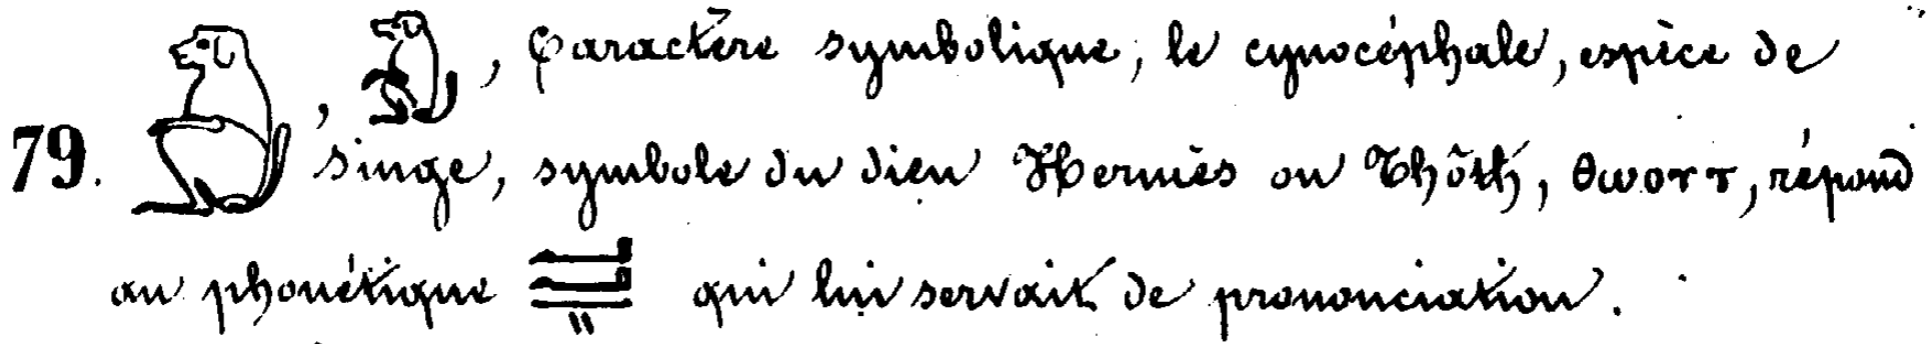 79. , , Caractère symbolique, le cynocéphale, espèce de
singe, symbole du dieu Hermès ou Thôth, θωοττ, répond
au phonétique qui lui servait de prononciation.